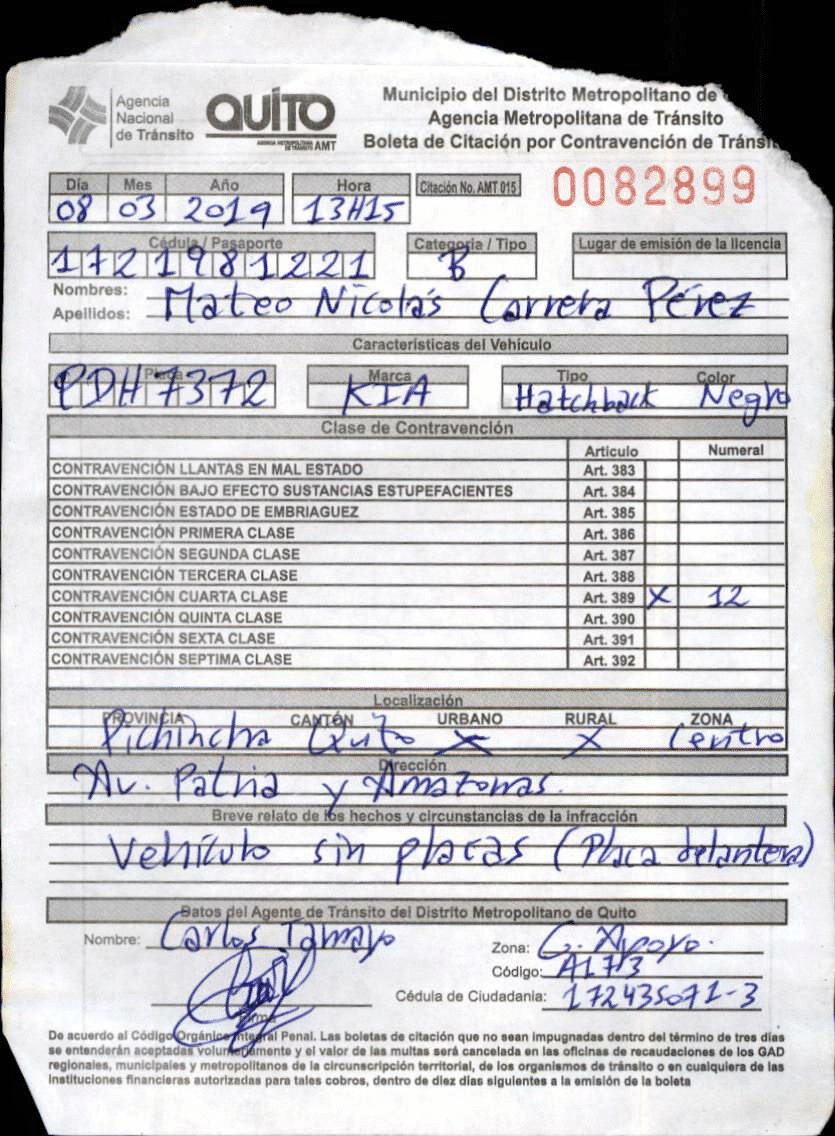 Agencia
Nacional
de Tránsito
QUÍTO
AGENCIA METROPOLITANA DE TRÁNSITO AMT
Municipio del Distrito Metropolitano de
Agencia Metropolitana de Tránsito
Boleta de Citación por Contravención de Tráns
Día Mes Año Hora Citación No. AMT 015 0082899
08 03 2019 13H15
Cédula / Pasaporte Categoria / Tipo Lugar de emisión de la licencia
1721981221 B
Nombres:
Apellidos: Mateo Nicolás Carrera Pérez
Características del Vehículo
Placa Marca Tipo Color
PDH7372 KIA Hatchback Negro
Clase de Contravención
Articulo Numeral
CONTRAVENCIÓN LLANTAS EN MAL ESTADO Art. 383
CONTRAVENCIÓN BAJO EFECTO SUSTANCIAS ESTUPEFACIENTES Art. 384
CONTRAVENCIÓN ESTADO DE EMBRIAGUEZ Art. 385
CONTRAVENCIÓN PRIMERA CLASE Art. 386
CONTRAVENCIÓN SEGUNDA CLASE Art. 387
CONTRAVENCIÓN TERCERA CLASE Art. 388
CONTRAVENCIÓN CUARTA CLASE Art. 389 X 12
CONTRAVENCIÓN QUINTA CLASE Art. 390
CONTRAVENCIÓN SEXTA CLASE Art. 391
CONTRAVENCIÓN SEPTIMA CLASE Art. 392
Localización
PROVINCIA CANTÓN URBANO RURAL ZONA
Pichincha Quito X X Centro
Dirección
Av. Patria y Amazonas.
Breve relato de los hechos y circunstancias de la infracción
Vehículo sin placas (Placa delantera)
Datos del Agente de Tránsito del Distrito Metropolitano de Quito
Nombre: Carlos Tamayo Zona: C. Apoyo.
Código: A1773
Cédula de Ciudadania: 172435071-3
Firma
De acuerdo al Código Orgánico Integral Penal. Las boletas de citación que no sean impugnadas dentro del término de tres días
se entenderán aceptadas voluntariamente y el valor de las multas será cancelada en las oficinas de recaudaciones de los GAD
regionales, municipales y metropolitanos de la circunscripción territorial, de los organismos de tránsito o en cualquiera de las
instituciones financieras autorizadas para tales cobros, dentro de diez días siguientes a la emisión de la boleta